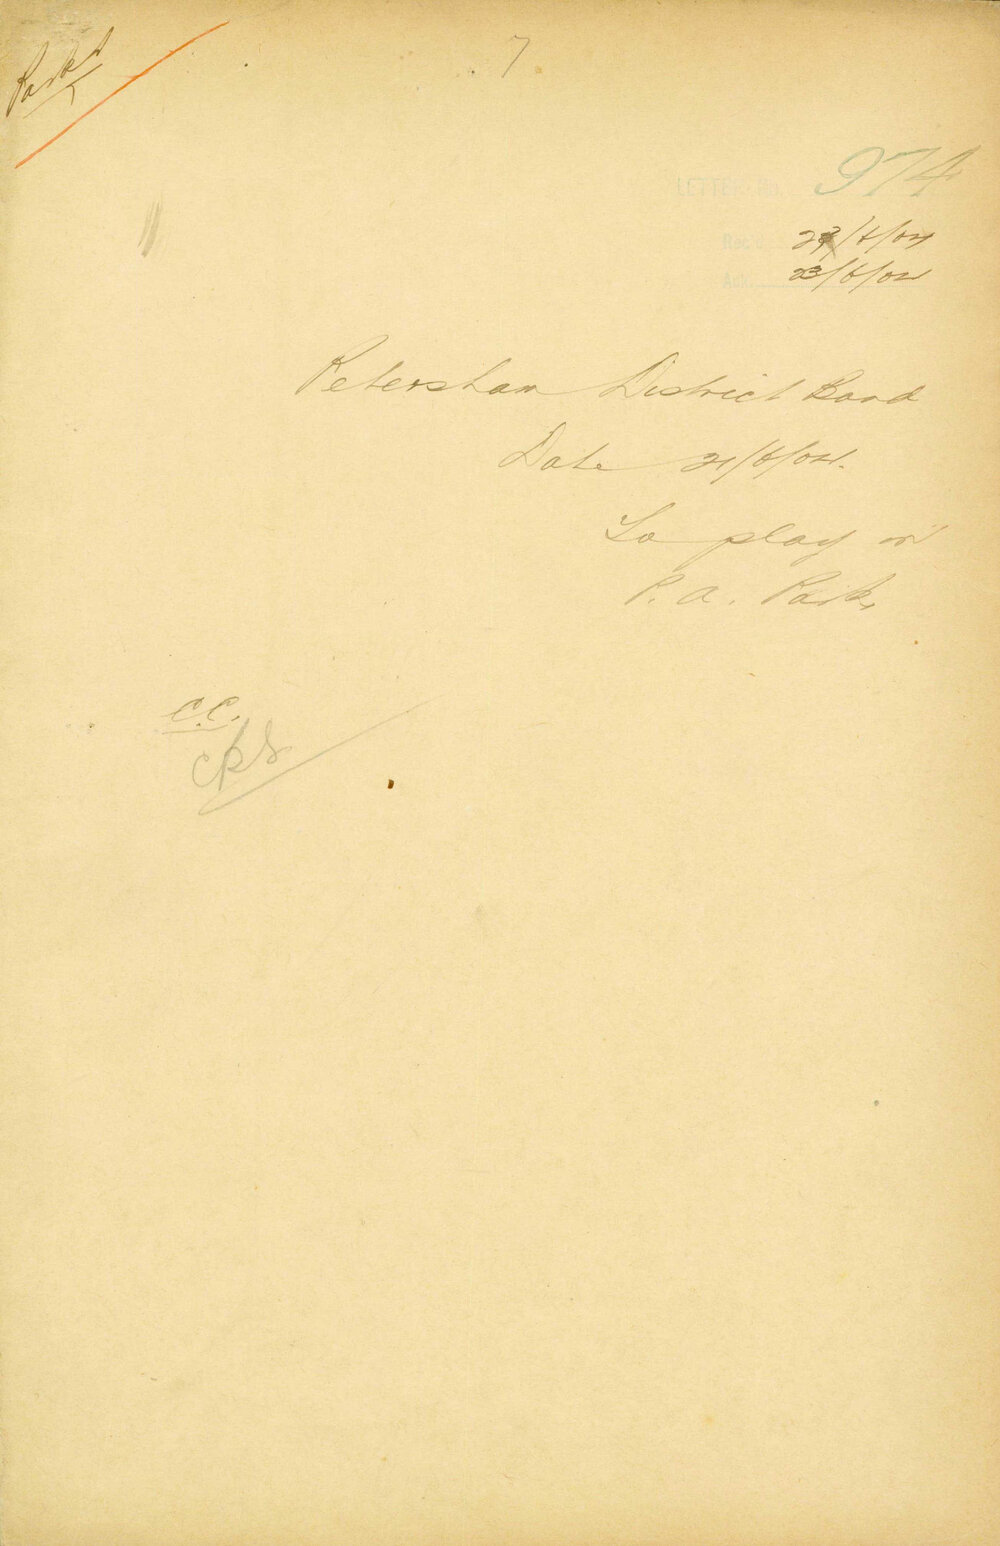 Parks
7
LETTER No. 974
Rec'd 23/6/04
Ack. 23/6/04
Petersham District Band
Date 21/6/04.
To play in
P. A. Park
C.C.